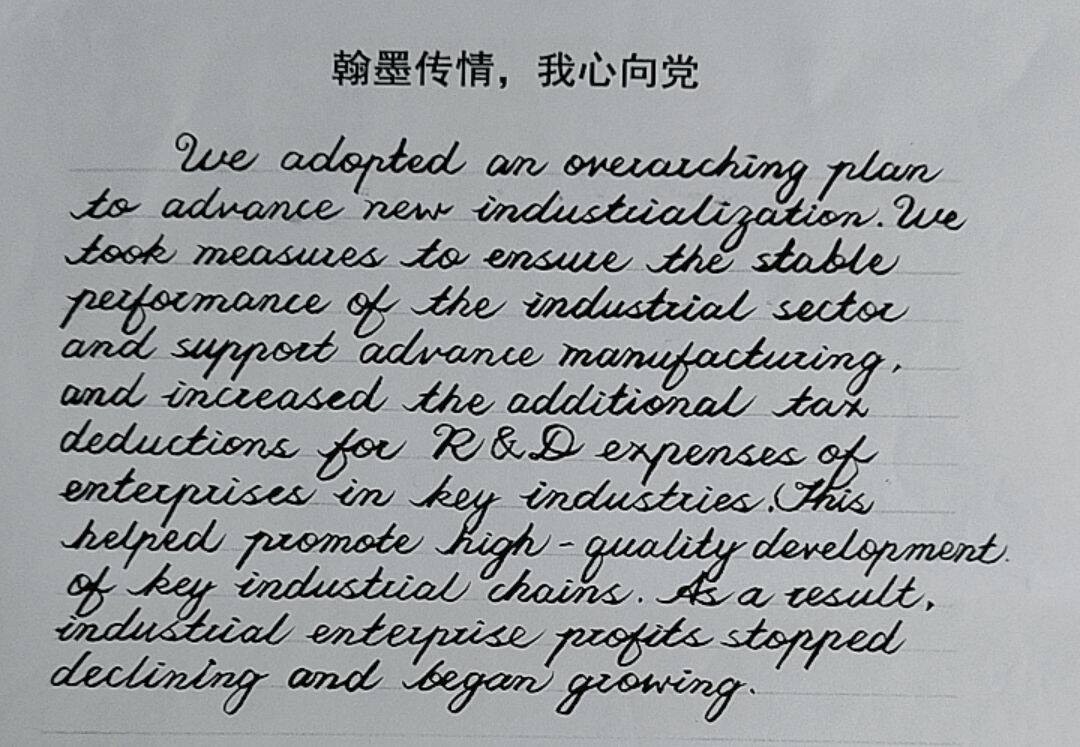 翰墨传情，我心向党
We adopted an overarching plan
to advance new industrialization. We
took measures to ensure the stable
performance of the industrial sector
and support advance manufacturing,
and increased the additional tax
deductions for R&D expenses of
enterprises in key industries. This
helped promote high-quality development.
of key industrial chains. As a result,
industrial enterprise profits stopped
declining and began growing.